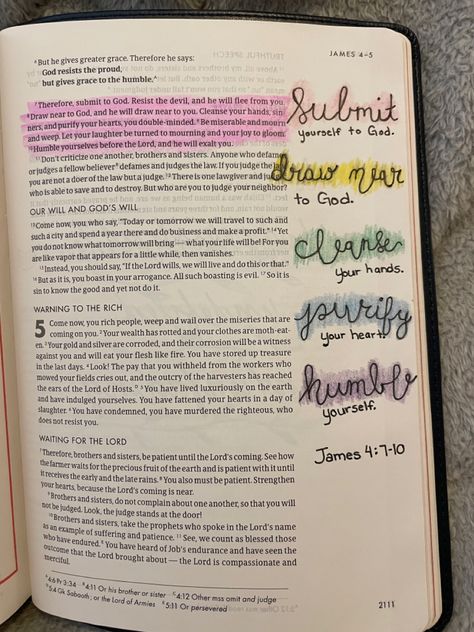 JAMES 4–5
⁶ But he gives greater grace. Therefore he says:
God resists the proud,
but gives grace to the humble.ᴬ
⁷ Therefore, submit to God. Resist the devil, and he will flee from you.
⁸ Draw near to God, and he will draw near to you. Cleanse your hands, sin-
ners, and purify your hearts, you double-minded. ⁹ Be miserable and mourn
and weep. Let your laughter be turned to mourning and your joy to gloom.
¹⁰ Humble yourselves before the Lord, and he will exalt you.
¹¹ Don't criticize one another, brothers and sisters. Anyone who defames
or judges a fellow believerᴮ defames and judges the law. If you judge the law,
you are not a doer of the law but a judge. ¹² There is one lawgiver and judgeᶜ
who is able to save and to destroy. But who are you to judge your neighbor?
OUR WILL AND GOD'S WILL
¹³ Come now, you who say, "Today or tomorrow we will travel to such and
such a city and spend a year there and do business and make a profit." ¹⁴ Yet
you do not know what tomorrow will bring — what your life will be! For you
are like vapor that appears for a little while, then vanishes.
¹⁵ Instead, you should say, "If the Lord wills, we will live and do this or that."
¹⁶ But as it is, you boast in your arrogance. All such boasting is evil. ¹⁷ So it is
sin to know the good and yet not do it.
WARNING TO THE RICH
5 Come now, you rich people, weep and wail over the miseries that are
coming on you. ² Your wealth has rotted and your clothes are moth-eat-
en. ³ Your gold and silver are corroded, and their corrosion will be a witness
against you and will eat your flesh like fire. You have stored up treasure
in the last days. ⁴ Look! The pay that you withheld from the workers who
mowed your fields cries out, and the outcry of the harvesters has reached
the ears of the Lord of Hosts.ᴰ ⁵ You have lived luxuriously on the earth
and have indulged yourselves. You have fattened your hearts in a day of
slaughter. ⁶ You have condemned, you have murdered the righteous, who
does not resist you.
WAITING FOR THE LORD
⁷ Therefore, brothers and sisters, be patient until the Lord's coming. See how
the farmer waits for the precious fruit of the earth and is patient with it until
it receives the early and the late rains. ⁸ You also must be patient. Strengthen
your hearts, because the Lord's coming is near.
⁹ Brothers and sisters, do not complain about one another, so that you will
not be judged. Look, the judge stands at the door!
¹⁰ Brothers and sisters, take the prophets who spoke in the Lord's name
as an example of suffering and patience. ¹¹ See, we count as blessed those
who have endured.ᴱ You have heard of Job's endurance and have seen the
outcome that the Lord brought about — the Lord is compassionate and
merciful.
ᴬ 4:6 Pr 3:34 ᴮ 4:11 Or his brother or sister ᶜ 4:12 Other mss omit and judge
ᴰ 5:4 Gk Sabaoth; or the Lord of Armies ᴱ 5:11 Or persevered
2111
submit
yourself to God.
draw near
to God.
cleanse
your hands.
purify
your heart.
humble
yourself.
James 4:7-10